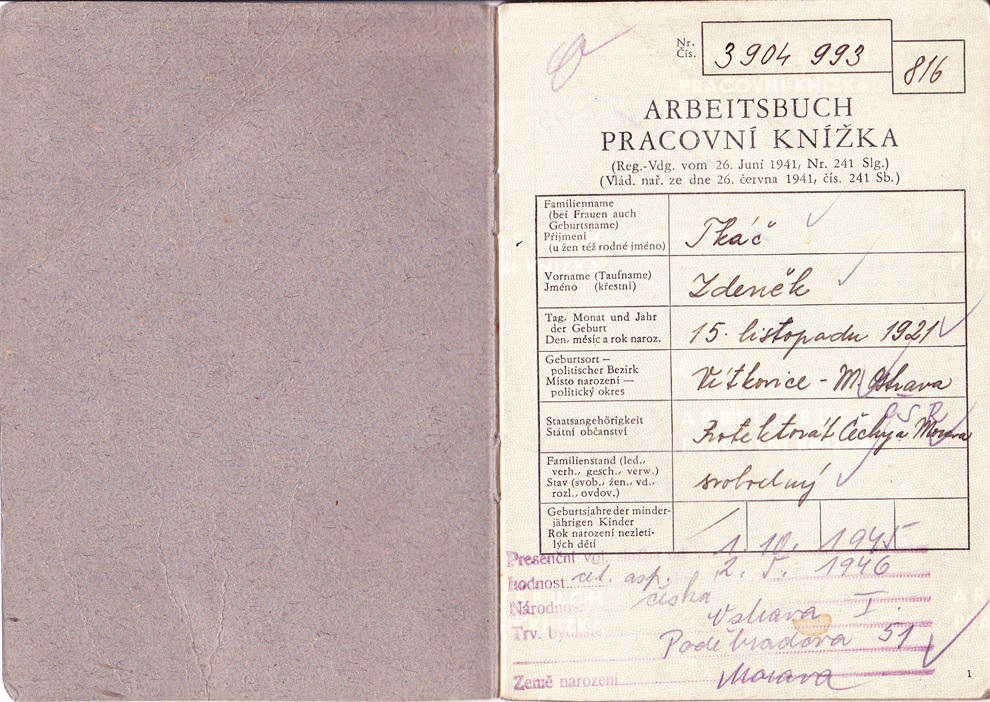 Nr.
Čís.
3904 993
816
ARBEITSBUCH
PRACOVNÍ KNÍŽKA
(Reg.-Vdg. vom 26. Juni 1941, Nr. 241 Slg.)
(Vlád. nař. ze dne 26. června 1941, čís. 241 Sb.)
Familienname
(bei Frauen auch
Geburtsname)
Příjmení
(u žen též rodné jméno)
Tkáč
Vorname (Taufname)
Jméno (křestní)
Zdeněk
Tag, Monat und Jahr
der Geburt
Den, měsíc a rok naroz.
15. listopadu 1921
Geburtsort —
politischer Bezirk
Místo narození —
politický okres
Vítkovice - M. Ostrava
Staatsangehörigkeit
Státní občanství
ČSR
Protektorát Čechy a Morava
Familienstand (led.,
verh., gesch., verw.)
Stav (svob., žen., vd.,
rozl., ovdov.)
svobodný
Geburtsjahre der minder-
jährigen Kinder
Rok narození nezleti-
lých dětí
Presenční 1. 10. 1945
2. 5. 1946
hodnost asp.
Národnost česká
Trv. bydliště Ostrava I.
Poděbradova 51
Země narození Morava
1